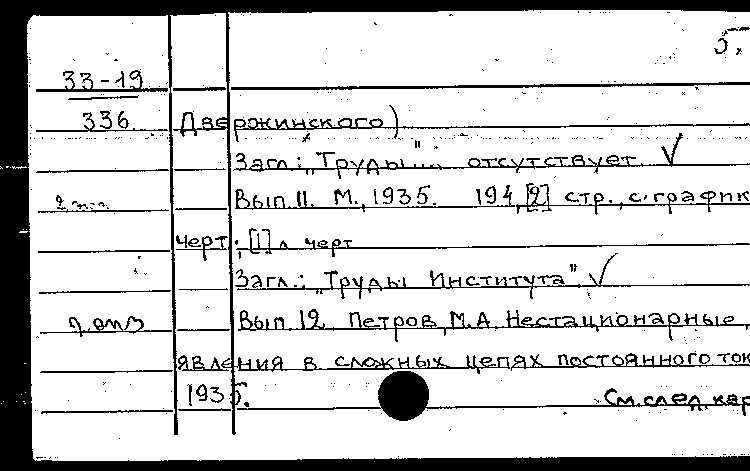 5.
33-19
336. Дзержинского)
Загл.: „Труды"... отсутствует
Вып. 11. М., 1935. 194, [2] стр., с график
черт.; [1] л черт
Загл.: „Труды Института".
Вып. 12 Петров, М.А. Нестационарные
явления в сложных цепях постоянного ток
1935.
См. след. кар